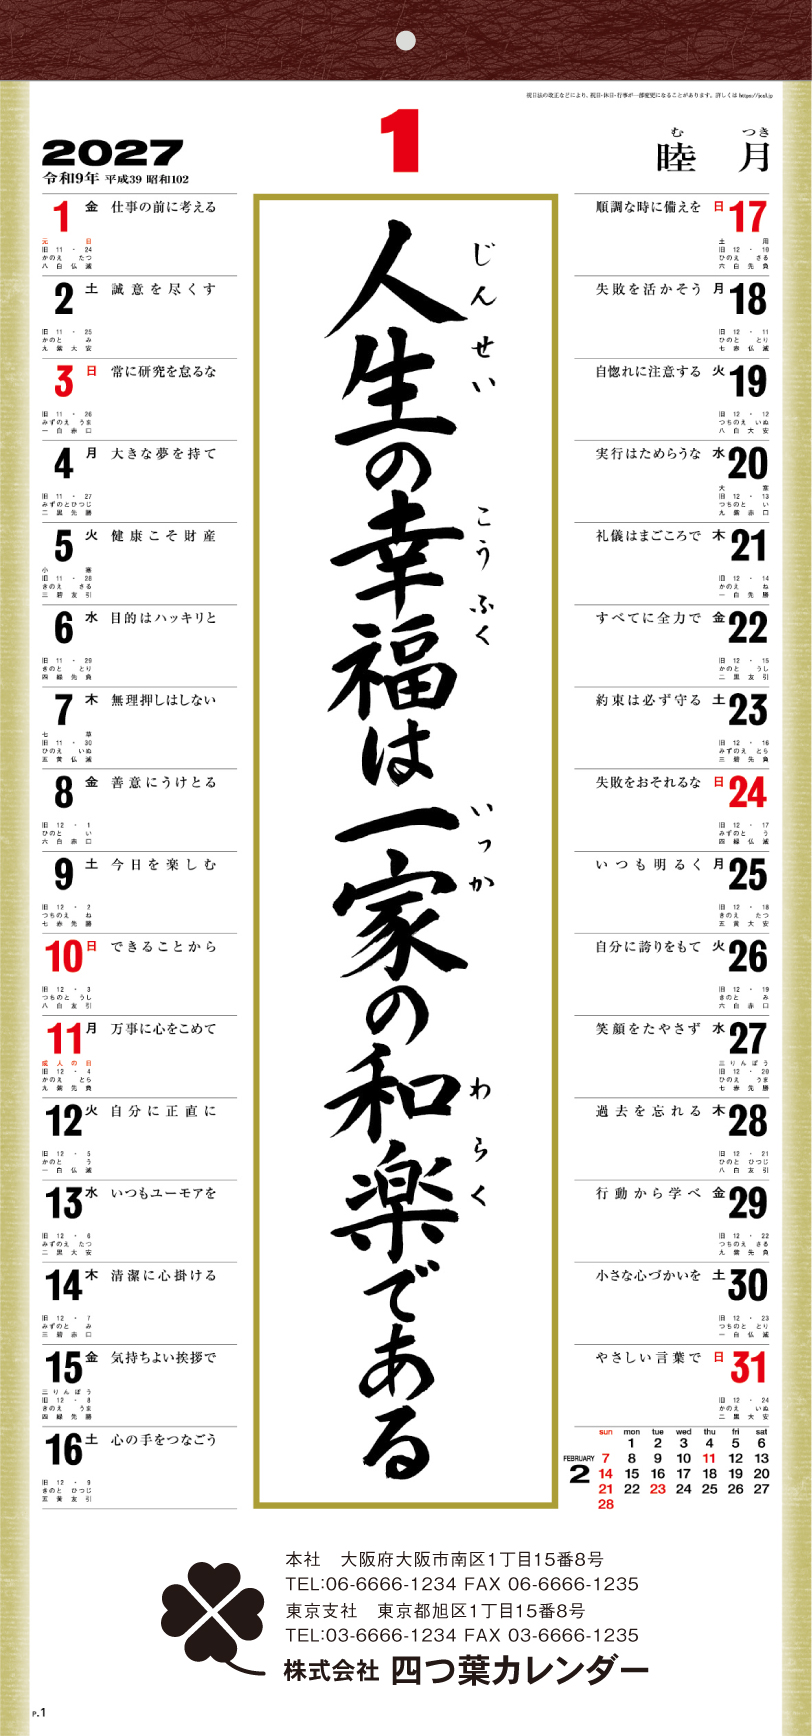 祝日法の改正などにより、祝日・休日・行事が一部変更になることがあります。詳しくは https://jcal.jp
1
2027
令和9年 平成39 昭和102
む つき
睦月
人生の幸福は一家の和楽である
じんせい こうふく いっか わらく
1 金 仕事の前に考える
元日
旧11・24
かのえ たつ
八白仏滅
2 土 誠意を尽くす
旧11・25
かのと み
九紫大安
3 日 常に研究を怠るな
旧11・26
みずのえ うま
一白赤口
4 月 大きな夢を持て
旧11・27
みずのとひつじ
二黒先勝
5 火 健康こそ財産
小寒
旧11・28
きのえ さる
三碧友引
6 水 目的はハッキリと
旧11・29
きのと とり
四緑先負
7 木 無理押しはしない
七草
旧11・30
ひのえ いぬ
五黄仏滅
8 金 善意にうけとる
旧12・1
ひのと い
六白赤口
9 土 今日を楽しむ
旧12・2
つちのえ ね
七赤先勝
10 日 できることから
旧12・3
つちのと うし
八白友引
11 月 万事に心をこめて
成人の日
旧12・4
かのえ とら
九紫先負
12 火 自分に正直に
旧12・5
かのと う
一白仏滅
13 水 いつもユーモアを
旧12・6
みずのえ たつ
二黒大安
14 木 清潔に心掛ける
旧12・7
みずのと み
三碧赤口
15 金 気持ちよい挨拶で
三りんぼう
旧12・8
きのえ うま
四緑先勝
16 土 心の手をつなごう
旧12・9
きのと ひつじ
五黄友引
順調な時に備えを 日 17
土用
旧12・10
ひのえ さる
六白先負
失敗を活かそう 月 18
旧12・11
ひのと とり
七赤仏滅
自惚れに注意する 火 19
旧12・12
つちのえ いぬ
八白大安
実行はためらうな 水 20
大寒
旧12・13
つちのと い
九紫赤口
礼儀はまごころで 木 21
旧12・14
かのえ ね
一白先勝
すべてに全力で 金 22
旧12・15
かのと うし
二黒友引
約束は必ず守る 土 23
旧12・16
みずのえ とら
三碧先負
失敗をおそれるな 日 24
旧12・17
みずのと う
四緑仏滅
いつも明るく 月 25
旧12・18
きのえ たつ
五黄大安
自分に誇りをもて 火 26
旧12・19
きのと み
六白赤口
笑顔をたやさず 水 27
三りんぼう
旧12・20
ひのえ うま
七赤先勝
過去を忘れる 木 28
旧12・21
ひのと ひつじ
八白友引
行動から学べ 金 29
旧12・22
つちのえ さる
九紫先負
小さな心づかいを 土 30
旧12・23
つちのと とり
一白仏滅
やさしい言葉で 日 31
旧12・24
かのえ いぬ
二黒大安
FEBRUARY
2
sun mon tue wed thu fri sat
1 2 3 4 5 6
7 8 9 10 11 12 13
14 15 16 17 18 19 20
21 22 23 24 25 26 27
28
本社 大阪府大阪市南区1丁目15番8号
TEL:06-6666-1234 FAX 06-6666-1235
東京支社 東京都旭区1丁目15番8号
TEL:03-6666-1234 FAX 03-6666-1235
株式会社 四つ葉カレンダー
P.1